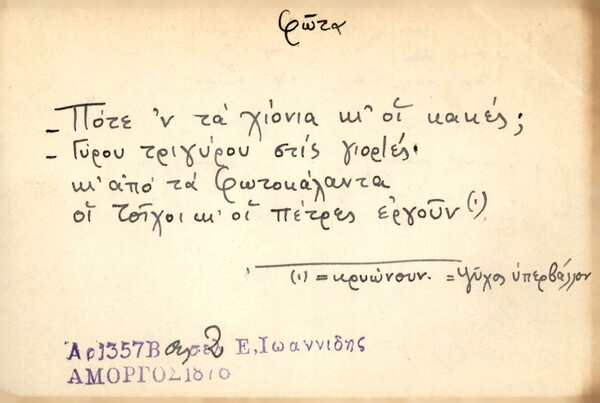 φῶτα
- Πότε 'ν τὰ χιόνια κι' οἵ κακές;
- Γύρου τριγύρου στίς γιορτές·
κι' ἀπό τά Φωτοκάλαντα
οἵ τοῖχοι κ' οἵ πέτρες ἐργοῦν(1)
(1) = κρυώνουν. = Ψῦχος ὑπερβάλλον
Ἀρ1357Β σελ 2 Ε, Ιωαννιδης
ΑΜΟΡΓΟΣ1876